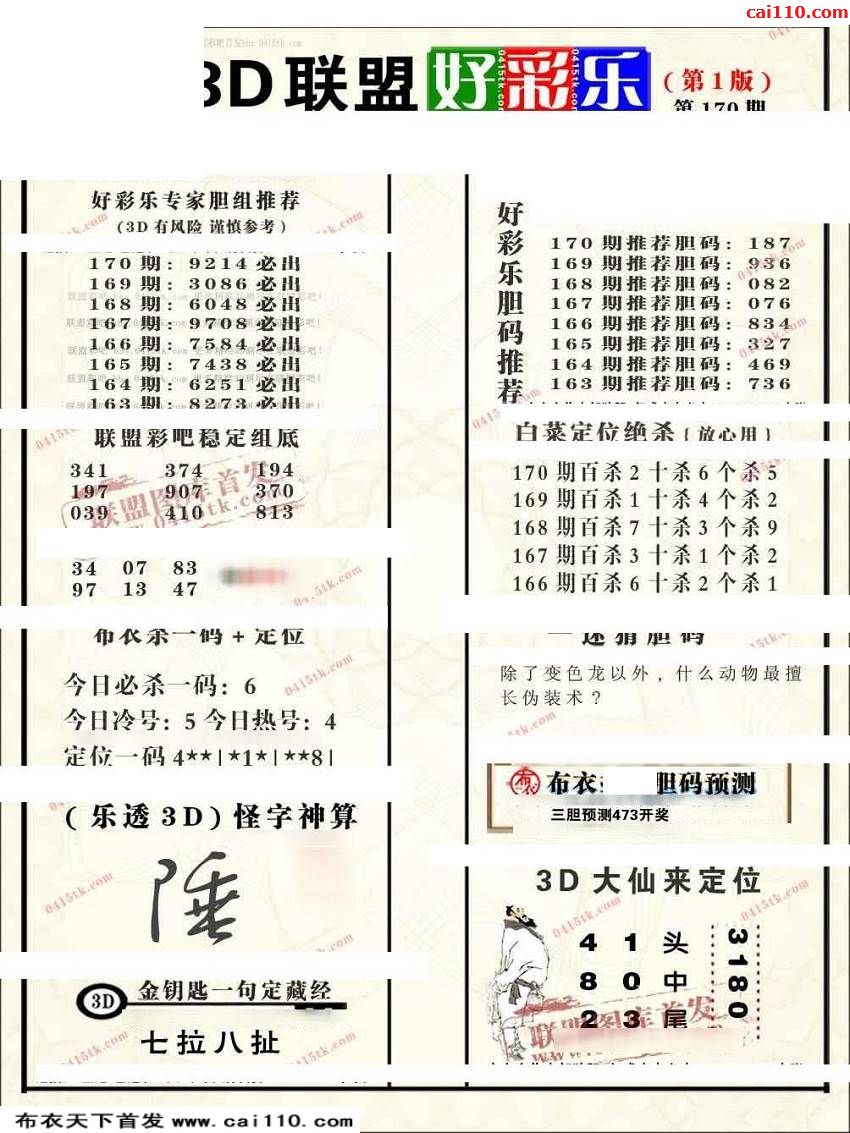 cai110.com
3D联盟好彩乐
(第1版)
第170期
好彩乐专家胆组推荐
(3D有风险 谨慎参考)
170期: 9214必出
169期: 3086必出
168期: 6048必出
167期: 9708必出
166期: 7584必出
165期: 7438必出
164期: 6251必出
163期: 8273必出
联盟彩吧稳定组底
341 374 194
197 907 370
039 410 813
34 07 83
97 13 47
布衣杀一码+定位
今日必杀一码: 6
今日冷号: 5 今日热号: 4
定位一码 4**|*1*|**8|
(乐透3D)怪字神算
陲
3D 金钥匙一句定藏经
七拉八扯
好彩乐胆码推荐
170期推荐胆码: 187
169期推荐胆码: 936
168期推荐胆码: 082
167期推荐胆码: 076
166期推荐胆码: 834
165期推荐胆码: 327
164期推荐胆码: 469
163期推荐胆码: 736
白菜定位绝杀(放心用)
170期百杀2十杀6个杀5
169期百杀1十杀4个杀2
168期百杀7十杀3个杀9
167期百杀3十杀1个杀2
166期百杀6十杀2个杀1
一迷猜胆码
除了变色龙以外，什么动物最擅
长伪装术？
布衣
胆码预测
三胆预测473开奖
3D大仙来定位
4 1 头
8 0 中
2 3 尾
3180
联盟图库首发
0415tk.com
布衣天下首发 www.cai110.com